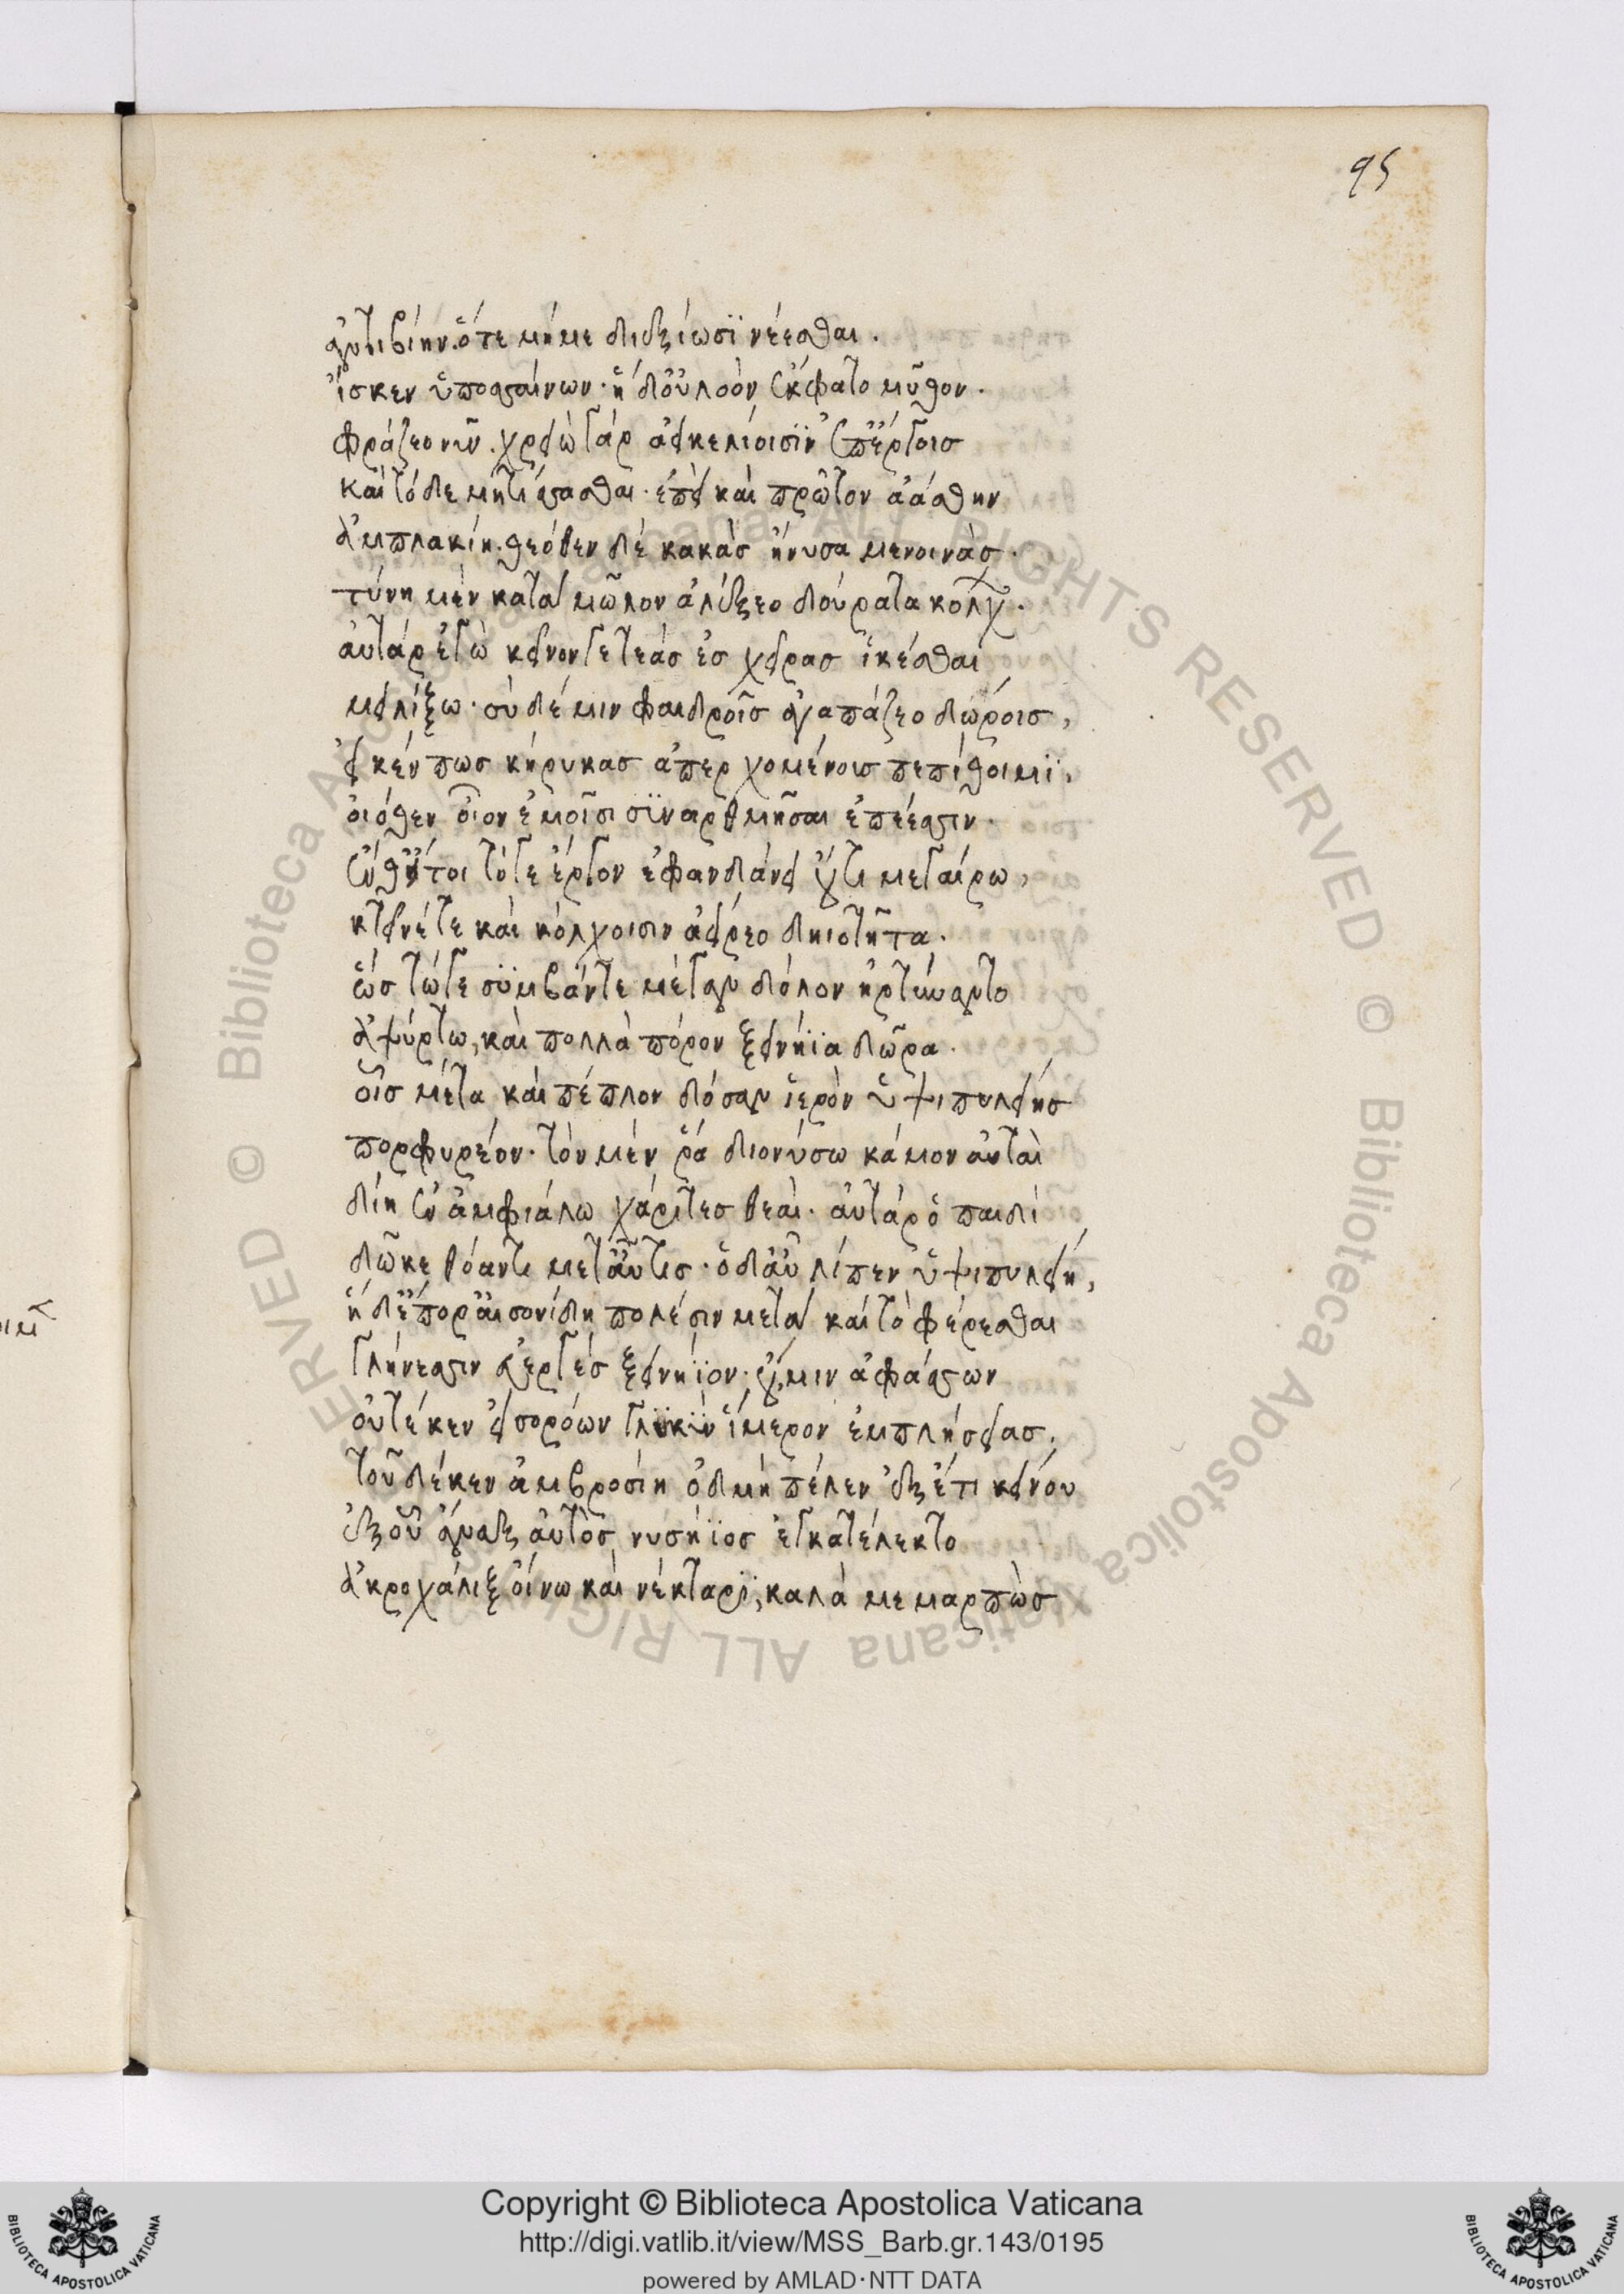 95
ἀντιβίην. ὅτε μή με διεξίωσϊ νέεσθαι.
ἴσκεν ὑποσσαίνων· ἡ δ' οὐλοὸν ἔκφατο μῦθον.
φράζεο νῦν. χρειὼ γὰρ ἀεικελίοισϊν ἐπ' ἔργοισ
καὶ τόδε μητιάσασθαι· ἐπεὶ καὶ πρῶτον ἀάσθην
ἀμπλακίη. θεόθεν δὲ κακὰσ ἤνυσα μενοινάσ.
τύνη μὲν κατὰ μῶλον ἀλέξεο δούρατα κολχ.
αὐτὰρ ἐγὼ κεῖνόν γε τεὰσ ἐσ χεῖρασ ἱκέσθαι
μειλίξω· σὺ δέ μιν φαιδροῖσ ἀγαπάζεο δώροισ,
εἴ κέν πωσ κήρυκασ ἀπερχομένουσ πεπίθοιμϊ,
οἰόθεν οἶον ἐμοῖσι συναρθμῆσαι ἐπέεσσιν.
ἔνθ' εἴ τοι τόγε ἔργον ἐφανδάνει οὔτι μεγαίρω,
κτεῖνέ τε καὶ κόλχοισιν ἀείρεο δηιοτῆτα.
ὣσ τώγε συμβάντε μέγαν δόλον ἠρτύναντο
ἀψύρτω, καὶ πολλὰ πόρον ξεινήϊα δῶρα.
οἷσ μέτα καὶ πέπλον δόσαν ἱερὸν ὑψιπυλείησ
πορφυρέον. τὸν μέν ῥα διονύσω κάμον αὐταὶ
δίη ἐν ἀμφιάλω χάριτεσ θεαί· αὐτὰρ ὁ παιδὶ
δῶκε θόαντι μεταῦτισ· ὁ δ' αὖ λίπεν ὑψιπυλείη,
ἡ δ' ἔπορ' αἰσονίδη πολέσιν μετὰ καὶ τὸ φέρεσθαι
γλήνεσσιν εὐεργὲσ ξεινήϊον· οὔ, μιν ἀφάσσων
οὔτέ κεν εἰσορόων γλϋκὺν ἵμερον ἐμπλήσειασ.
τοῦ δέ κεν ἀμβροσίη ὀδμὴ πέλεν ἐξέτι κείνου
ἐξ οὗ ἄναξ αὐτὸσ νυσήϊοσ ἐγκατέλεκτο
ἀκροχάλιξ οἴνω καὶ νέκταρϊ, καλὰ μεμαρπὼσ
Copyright © Biblioteca Apostolica Vaticana
http://digi.vatlib.it/view/MSS_Barb.gr.143/0195
powered by AMLAD·NTT DATA